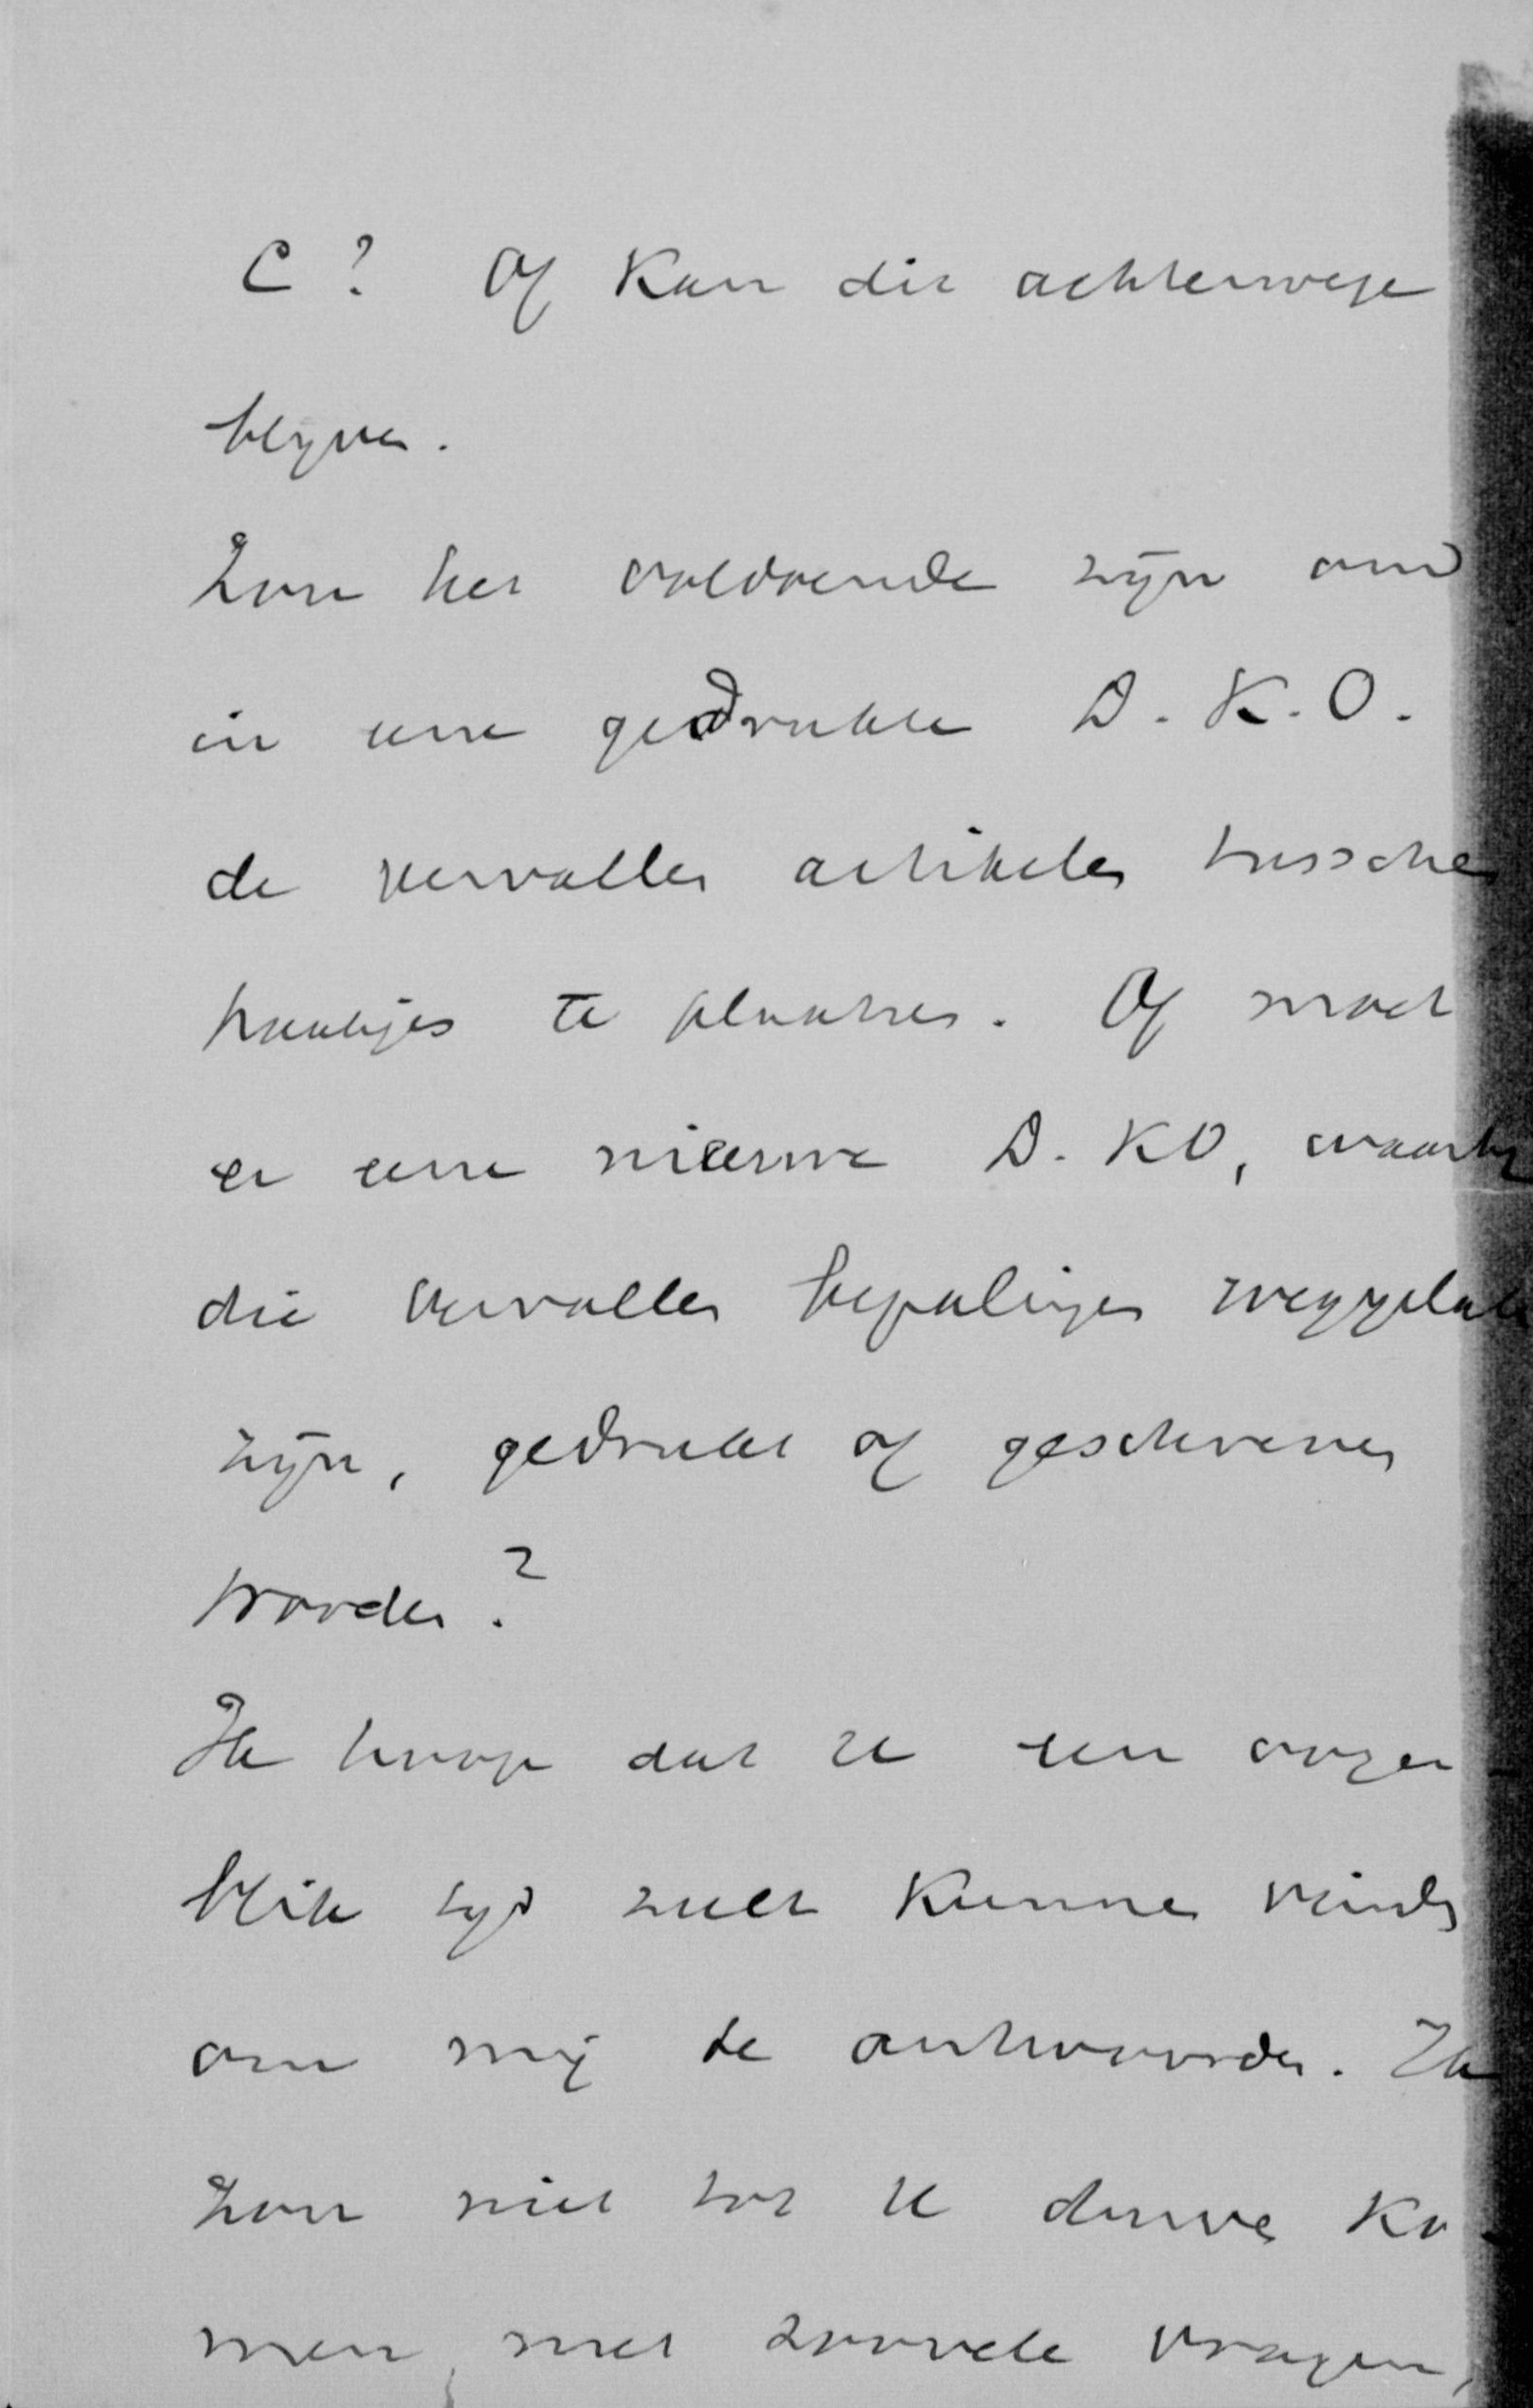 C? Of kan dit achterwege
blyven.
Zou het voldoende zijn om
in eene gedrukte D. K. O.
de vervallen artikelen tusschen
haakjes te plaatsen. Of moet
er eene nieuwe D. KO, waarby
die vervallen bepalingen weggelaten
zijn, gedrukt of geschreven
worden?
Ik hoop dat U een oogen-
blik tyd zult kunnen vinden
om mij te antwoorden. Ik
zou niet tot U durven ko-
men met zoovele vragen,